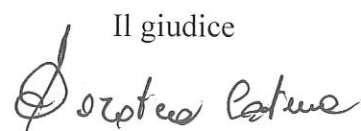 Il giudice
Dorotea Catena